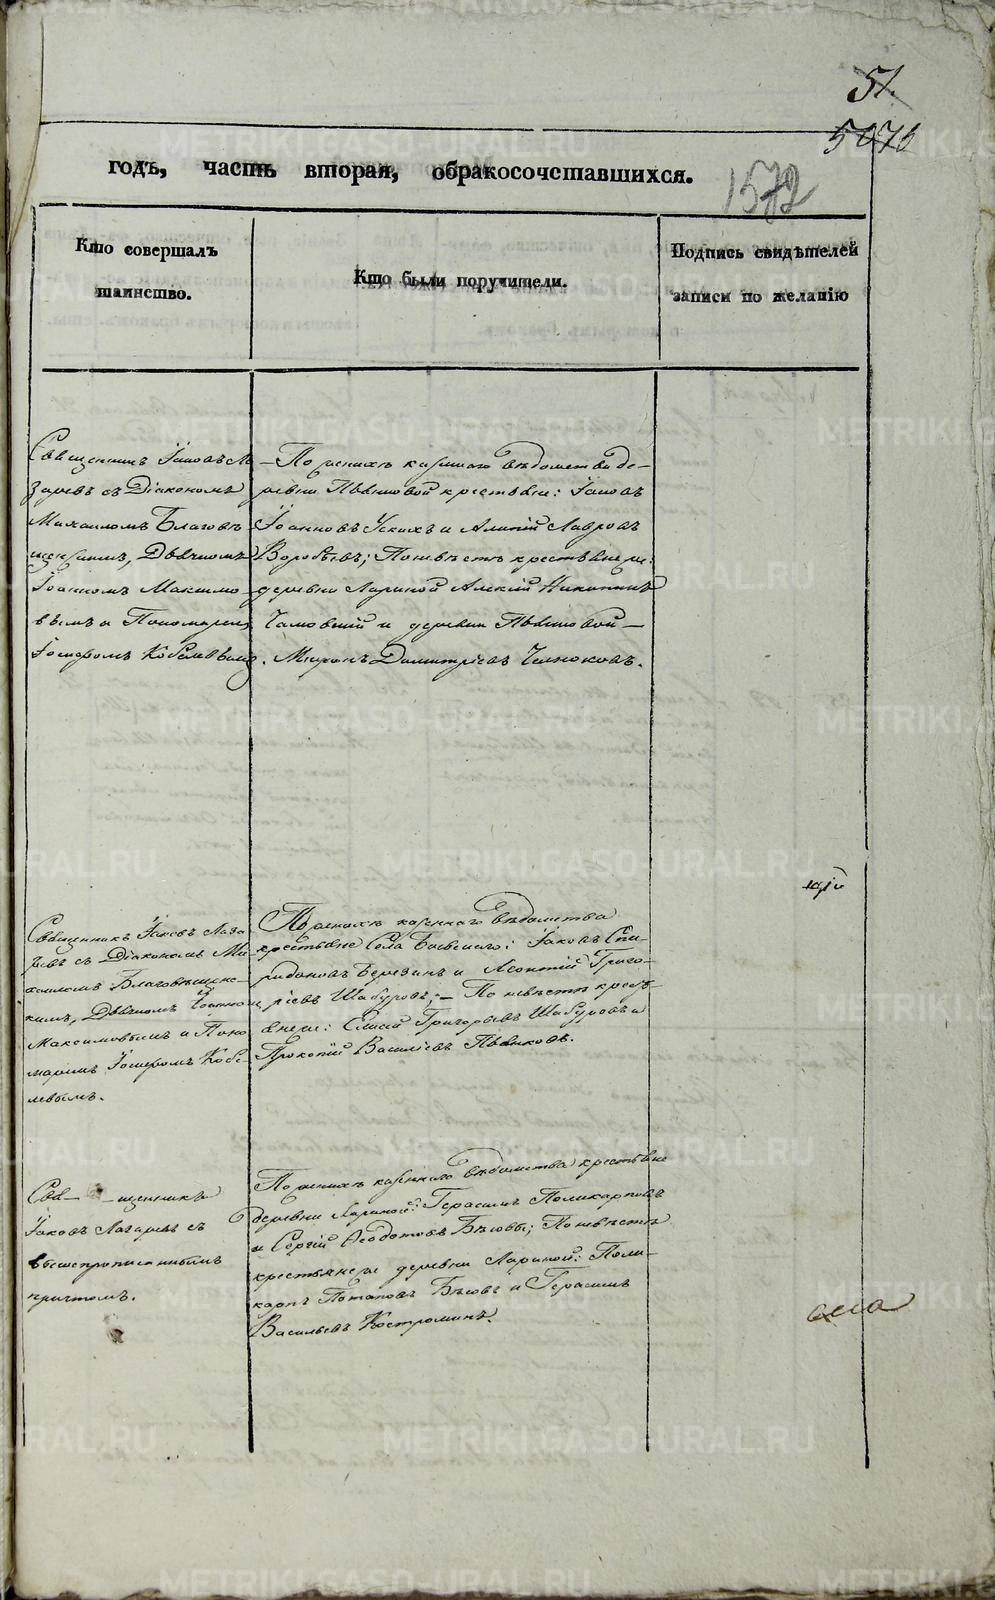 51.
5076
1572
годъ, часть вторая, обракосочетавшихся.
Кто совершалъ
таинство.
Кто были поручители.
Подпись свидѣтелей
записи по желанію
Священникъ Іаковъ Ла-
заревъ съ Діакономъ
Михаиломъ Благовѣ-
щенскимъ, Дьячкомъ
Іоанномъ Максимо-
вымъ и Пономаремъ
Іосифомъ Кобелевымъ.
По женихѣ казеннаго вѣдомства де-
ревни Пьянковой крестьяне: Іаковъ
Іоанновъ Ускихъ и Алипій Лавровъ
Воробьевъ; По невѣстѣ крестьяне же:
деревни Лариной Алексій Никитинъ
и деревни Пьянковой
Миронъ Димитріевъ Челноковъ.
Священникъ Іаковъ Лаза-
ревъ съ Діакономъ Ми-
хаиломъ Благовѣщенс-
кимъ, Дьячкомъ Іоанномъ
Максимовымъ и Поно-
маремъ Іосифомъ Кобе-
левымъ.
По женихѣ казеннаго вѣдомства
крестьяне Села Баевскаго: Іаковъ Спи-
ридоновъ Березинъ и Леонтій Григо-
ріевъ Шабуровъ; По невѣстѣ кресть-
яне же: Елисей Григорьевъ Шабуровъ и
Прокопій Василіевъ Пьянковъ.
Священникъ
Іаковъ Лазаревъ съ
вышепрописаннымъ
причтомъ.
По женихѣ казеннаго вѣдомства крестьяне
деревни Лариной: Герасимъ Поликарповъ
и Сергій Ѳеодотовъ Бѣловы; По невѣстѣ
крестьяне же деревни Лариной: Поли-
карпъ Потаповъ Бѣловъ и Герасимъ
Васильевъ Костроминъ.
METRIKI.GASO-URAL.RU